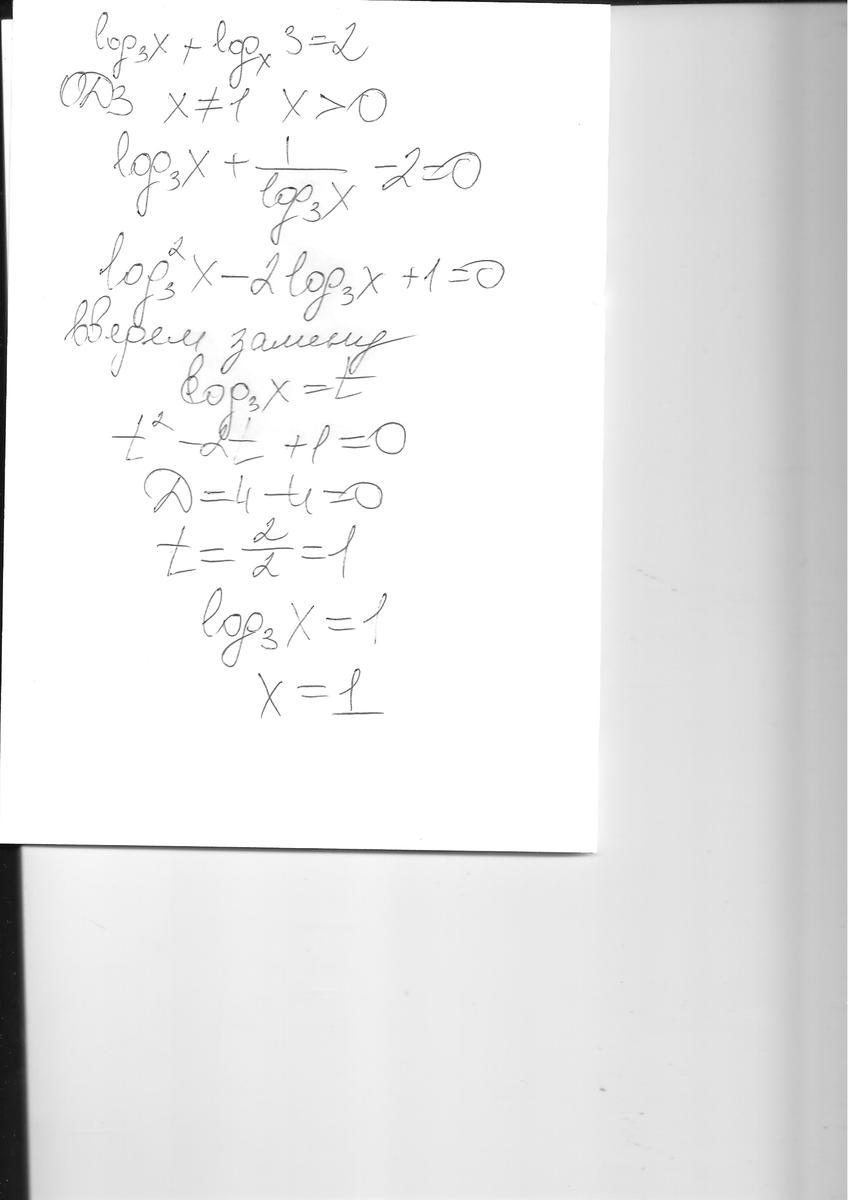 log₃x + logₓ 3 = 2
ОДЗ x ≠ 1 x > 0
log₃x + 1/log₃x - 2 = 0
log₃²x - 2 log₃x + 1 = 0
введем замену
log₃x = t
t² - 2t + 1 = 0
D = 4 - 4 = 0
t = 2/2 = 1
log₃x = 1
x = 1